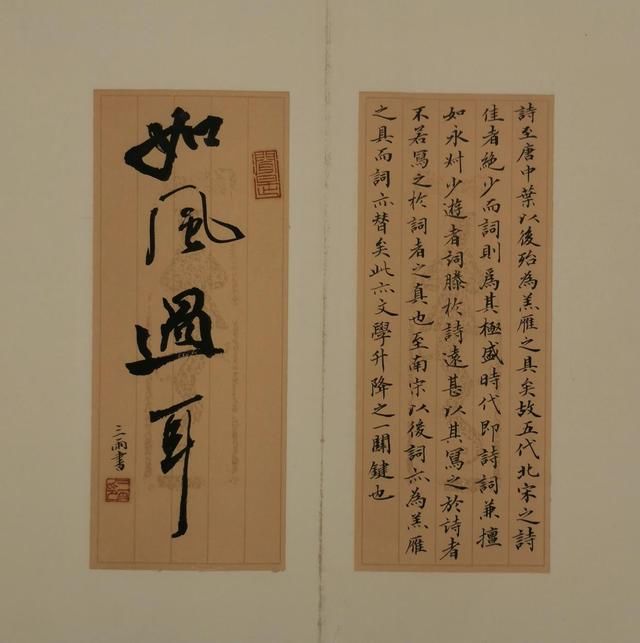 詩至唐中葉以後殆為羔雁之具矣故五代北宋之詩
佳者絶少而詞則為其極盛時代即詩詞兼擅
如永叔少遊者詞勝於詩遠甚以其寫之於詩者
不若寫之於詞者之真也至南宋以後詞亦為羔雁
之具而詞亦替矣此亦文學升降之一關鍵也
如風過耳
三雨書